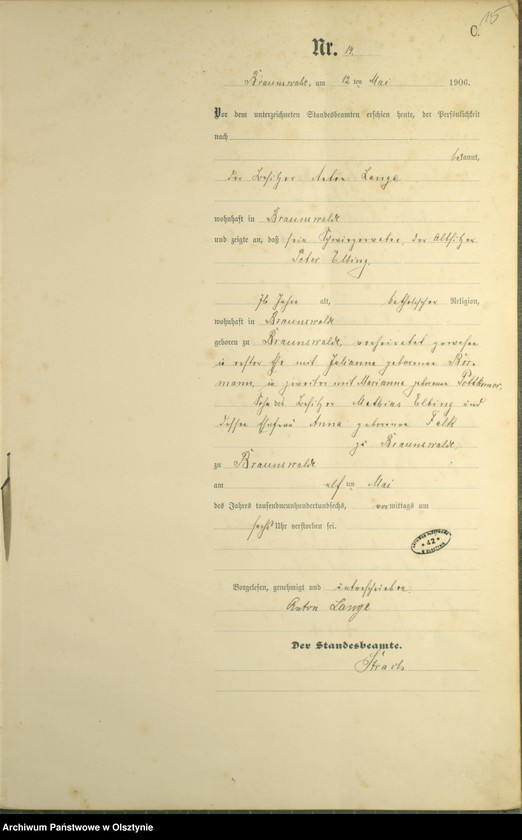 15
C.
Nr. 19.
Braunswalde, am 12 ten Mai 1906.
Vor dem unterzeichneten Standesbeamten erschien heute, der Persönlichkeit
nach
bekannt,
der Besitzer Anton Lange
wohnhaft in Braunswalde
und zeigte an, daß sein Schwiegervater, der Altsitzer
Peter Elbing,
76 Jahre alt, katholischer Religion,
wohnhaft in Braunswalde
geboren zu Braunswalde, verheiratet gewesen
in erster Ehe mit Julianne geborenen
in zweiter mit Marianne geborene
Sohn des Besitzer Mathias Elbing und
dessen Ehefrau Anna geborenen Falk
zu Braunswalde,
zu Braunswalde
am elf ten Mai
des Jahres tausendneunhundertundsechs, vormittags um
sechs Uhr verstorben sei.
ARCHIWUM PAŃSTWOWE
* 42 *
W OLSZTYNIE
Vorgelesen, genehmigt und unterschrieben.
Anton Lange
Der Standesbeamte.
Archiwum Państwowe w Olsztynie